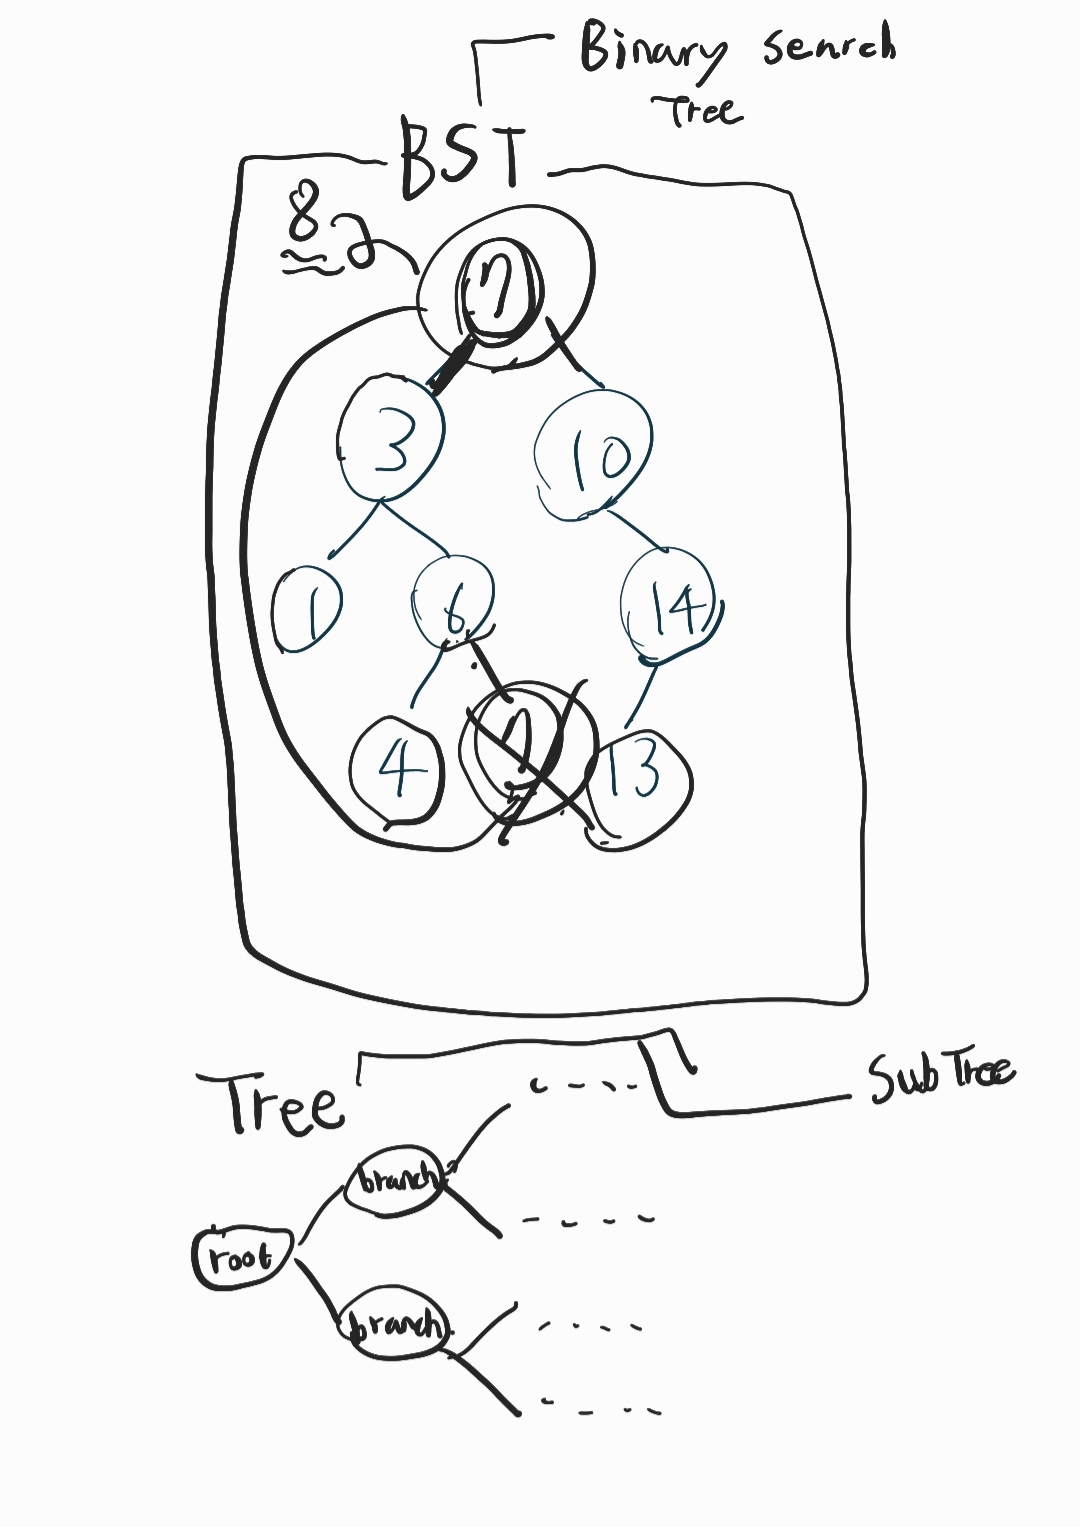 Binary search
Tree
BST
8
7
3
10
1
6
14
4
7
13
Tree
SubTree
branch
root
branch